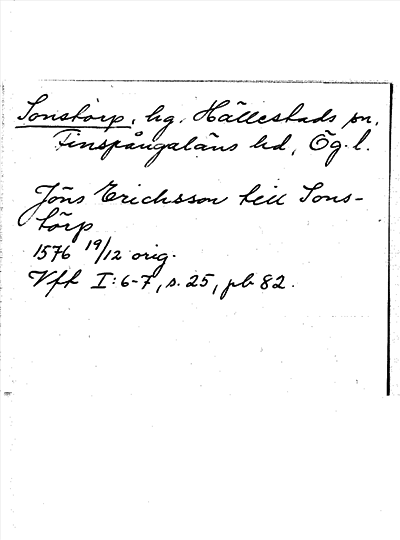 Sonstorp, hg. Hällestads sn,
Finspångaläns hd, Ög. l.
Jöns Erichsson till Sons-
törp
1576 19/12 orig.
Vfh I:6-7, s. 25, pb 82.